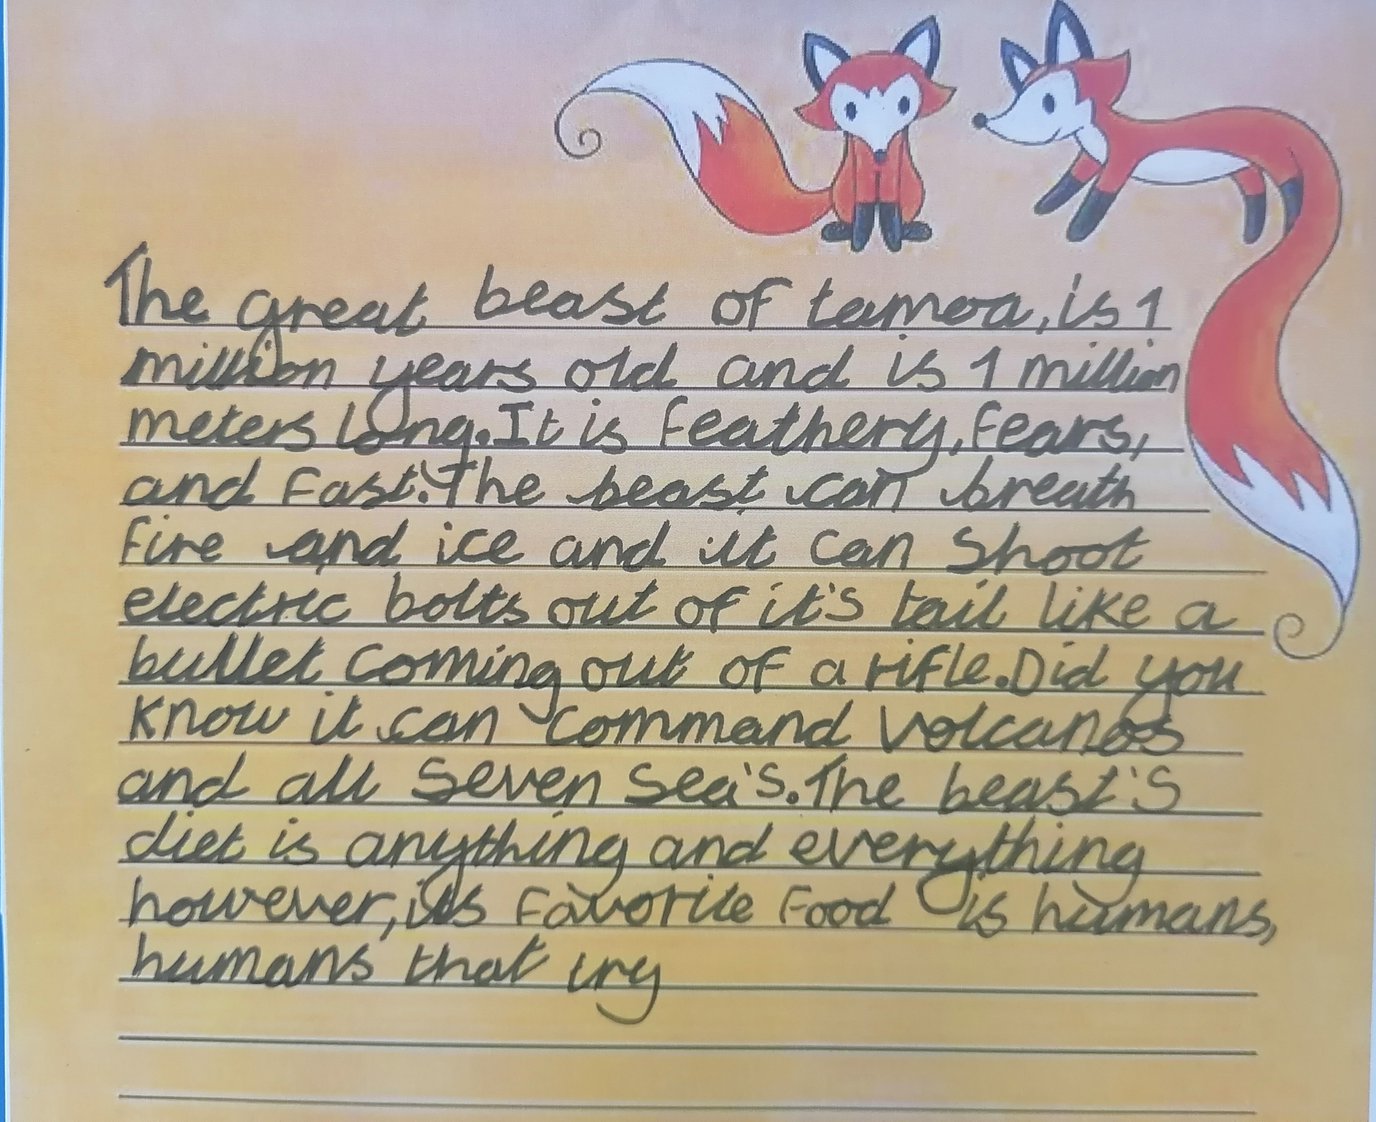 The great beast of tamoa, is 1
million years old and is 1 million
meters long. It is feathery, fears,
and fast. The beast can breath
fire and ice and it can shoot
electric bolts out of it's tail like a
bullet coming out of a rifle. Did you
know it can command volcanos
and all seven sea's. The beast's
diet is anything and everything
however, its favorite food is humans,
humans that try